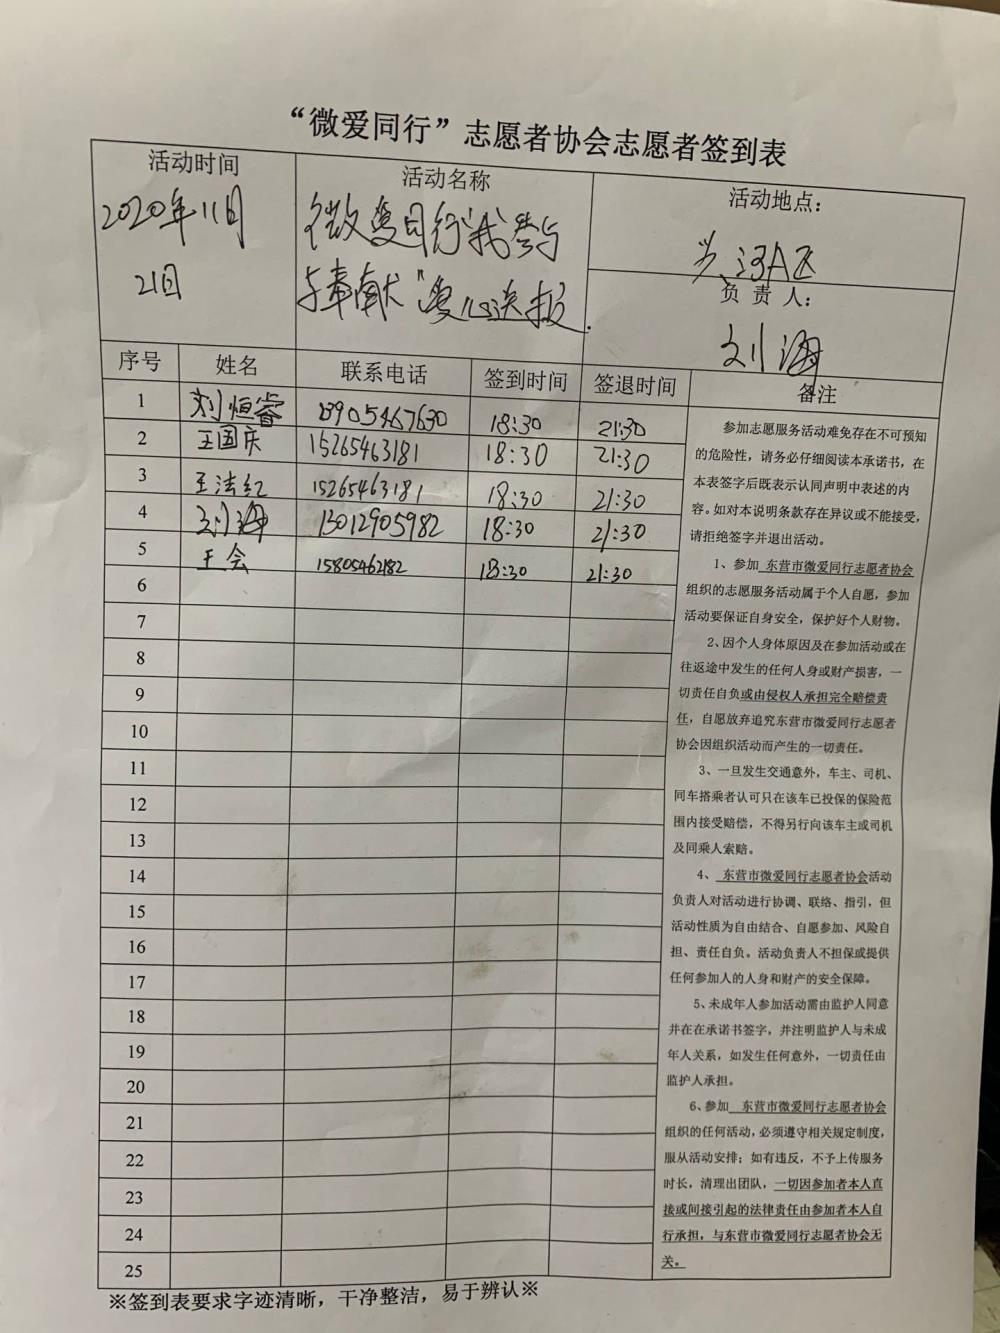 “微爱同行”志愿者协会志愿者签到表
活动时间
2020年11月
21日
活动名称
微爱同行“我参与
我奉献”爱心送报
活动地点：
兴河A区
负 责 人：
刘海
序号 姓名 联系电话 签到时间 签退时间 备注
1 刘恒睿 13905467630 18:30 21:30
2 王国庆 15265463181 18:30 21:30
3 王洁红 15265463181 18:30 21:30
4 刘海 13012905982 18:30 21:30
5 王会 15805462182 18:30 21:30
6
7
8
9
10
11
12
13
14
15
16
17
18
19
20
21
22
23
24
25
参加志愿服务活动难免存在不可预知
的危险性，请务必仔细阅读本承诺书，在
本表签字后既表示认同声明中表述的内
容。如对本说明条款存在异议或不能接受，
请拒绝签字并退出活动。
1、参加 东营市微爱同行志愿者协会
组织的志愿服务活动属于个人自愿，参加
活动要保证自身安全，保护好个人财物。
2、因个人身体原因及在参加活动或在
往返途中发生的任何人身或财产损害，一
切责任自负或由侵权人承担完全赔偿责
任，自愿放弃追究东营市微爱同行志愿者
协会因组织活动而产生的一切责任。
3、一旦发生交通意外，车主、司机、
同车搭乘者认可只在该车已投保的保险范
围内接受赔偿，不得另行向该车主或司机
及同乘人索赔。
4、 东营市微爱同行志愿者协会活动
负责人对活动进行协调、联络、指引，但
活动性质为自由结合、自愿参加、风险自
担、责任自负。活动负责人不担保或提供
任何参加人的人身和财产的安全保障。
5、未成年人参加活动需由监护人同意
并在在承诺书签字，并注明监护人与未成
年人关系，如发生任何意外，一切责任由
监护人承担。
6、参加 东营市微爱同行志愿者协会
组织的任何活动，必须遵守相关规定制度，
服从活动安排；如有违反，不予上传服务
时长，清理出团队，一切因参加者本人直
接或间接引起的法律责任由参加者本人自
行承担，与东营市微爱同行志愿者协会无
关。
※签到表要求字迹清晰，干净整洁，易于辨认※